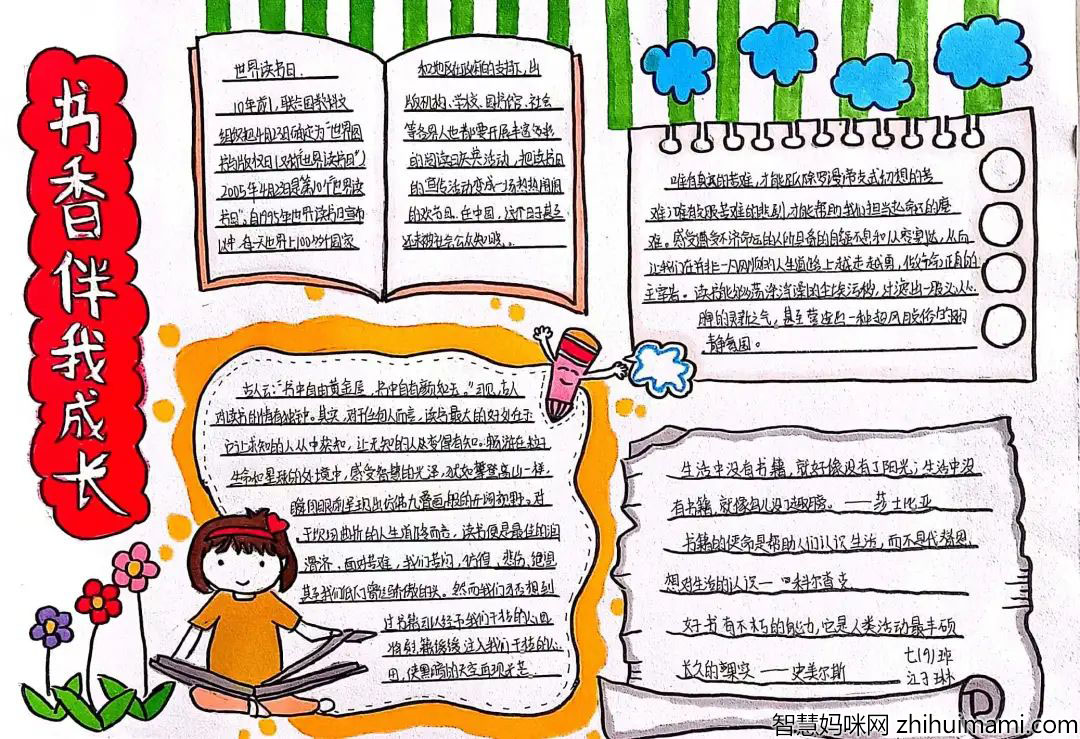 书香伴我成长
世界读书日
10年前,联合国教科文
组织把4月23日确定为"世界图
书与版权日(又称"世界读书日")
2005年4月23日是第10个"世界读
书日"。自1995年世界读书日宣布
以来,每天世界上100多个国家
和地区在政府的支持下,出
版机构、学校、图书馆、社会
等各界人也都要开展丰富多彩
的阅读庆典活动,把读书日
的宣传活动变成一场热热闹闹
的欢节日。在中国,这个日子甚至
还未被社会公众知晓。
难;唯有克服苦难的悲剧,才能帮助我们担当起命运的磨
难。感受遭受不济命运的人所具备的自强不息和从容豁达,从而
让我们在并非一凡风顺的人生道路上越走越勇,做命运真正的
主宰者。
甚至营造出一种超凡脱俗的
静氛围。
古人云:"书中自由黄金屋,书中自有颜如玉。"可见,古人
对读书的情有独钟。其实,对于任何人而言,读书最大的好处在于
它让求知的人从中获知,让无知的人变得有知。
生命和星球的处境中,感受智慧的光泽,犹如攀登高山一样,
瞬间眼前呈现出仿佛九叠画般的开阔视野。对
于坎坷曲折的人生道路而言,读书便是最佳的润
滑济。面对苦难,我们苦闷,彷徨,悲伤,绝望
甚至我们低下了曾经骄傲的头。然而我们可否想到
过书籍可以给予我们干枯的心田
将书籍缓缓注入我们干枯的心
田,使黑暗的天空再现光芒
生活中没有书籍,就好像没有了阳光;生活中没
有书籍,就像鸟儿没了翅膀。——莎士比亚
书籍的使命是帮助人们认识生活,而不是代替思
想对生活的认识——科尔查克
好书有不朽的能力,它是人类活动最丰硕
长久的果实——史美尔斯
七(9)班
江子琳
智慧妈咪网 zhihuimami.com